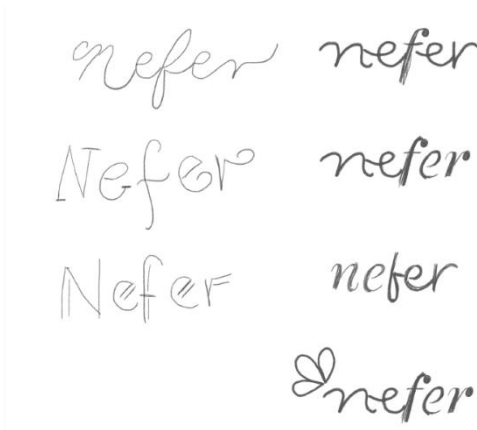 nefer nefer
Nefer nefer
Nefer nefer
nefer